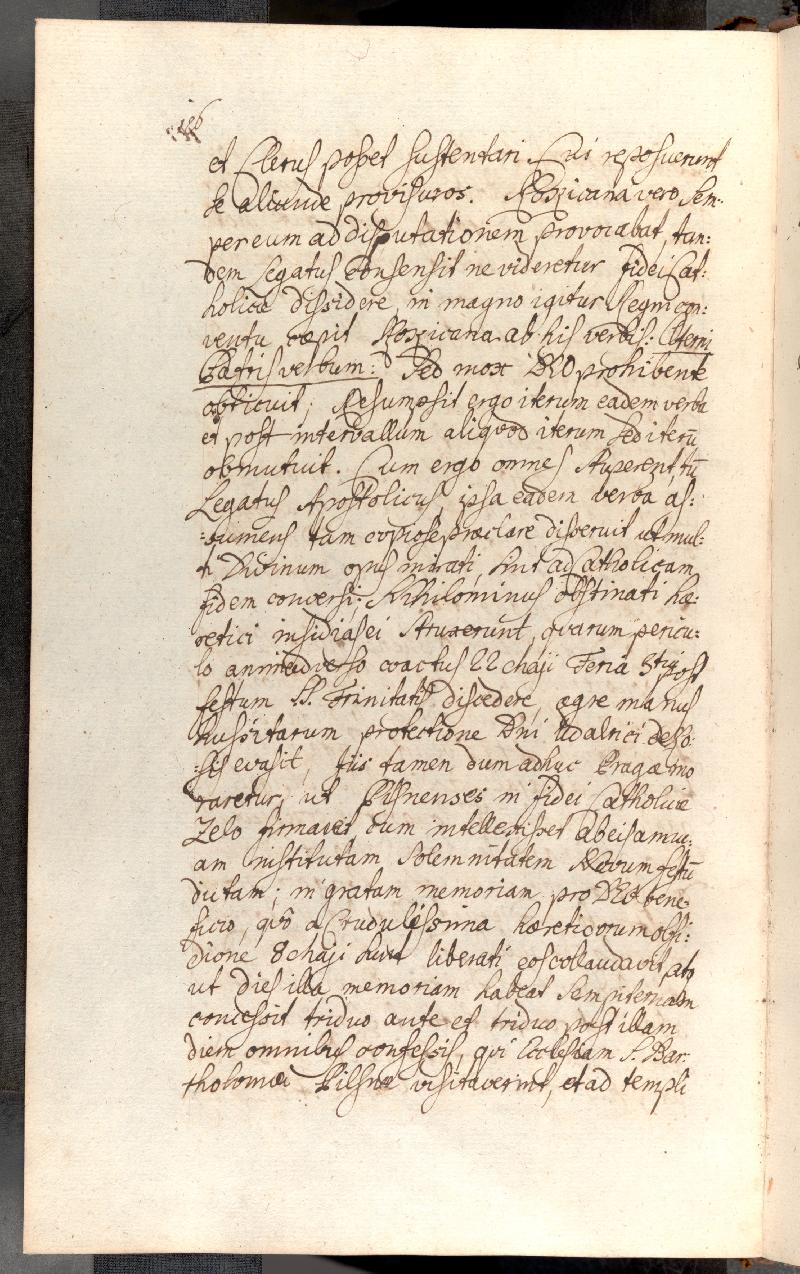 et Clerus posset sustentari. Cui reposuerunt
se aliunde provisuros. Rokicana vero sem-
per eum ad disputationem provocabat, tan:
dem Legatus consensit ne videretur fidei Cat:
holicæ dissidere, in magno igitur Regni con:
ventu cæpit Rokicana ab his verbis: Æterni
Patris verbum: Sed mox DEO prohibente
obticuit; Resumpsit ergo iterum eadem verba
et post intervallum aliquod iterum sed iterū
obmutuit. Cum ergo omnes stuperent, tū
Legatus Apostolicus, ipsa eadem verba as:
:sumens tam copiose præclare disseruit ut mul:
ti Divinum opus mirati, sint ad Catholicam
fidem conversi. Nihilominus obstinati hæ:
retici insidias ei struxerunt, quarum pericu:
lo animadverso coactus 22 Maji Feria 3tia post
festum SS. Trinitatis discedere, ægre manus
Hussitarum protectione Dni Udalrici de Ro:
:sis evasit, iis tamen dum adhuc Pragæ mo
raretur, ut Pilsnenses in fidei Catholicæ
Zelo firmaret, cum intellexisset ab eis annu:
am institutam solemnitatem Novum festū
dictam; in gratam memoriam pro DEI bene-
ficio, quo a Crudelissima hæreticorum obsi:
dione 8 Maji liberati eos collaudavit, atq
ut dies illa memoriam habeat sempiternam
concessit triduo ante et triduo post illam
diem omnibus confessis, qui Ecclesiam S. Bar-
tholomæi Pilsnæ visitaverint, et ad templi